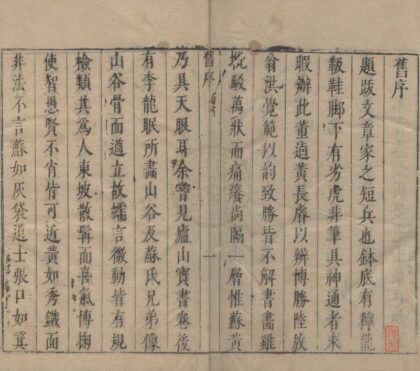 舊序
題跋文章家之短兵也鉢底有獰龍
靸鞋脚下有劣虎非筆具神通者未
暇辦此董逌黃長睿以辨博勝陸放
翁洪覺範以韵致勝皆不解書畵雖
批駁萬狀而痛癢尚隔一層惟蘇黃
舊序
一
乃具天眼耳余嘗見廬山寶書卷後
有李龍眠所畵山谷及蘇氏兄弟像
山谷骨面道立故蠕言微動皆有規
檢類其爲人東坡散髯而喜氣博掬
使智愚賢不肖皆可近黃如秀鐵面
非法不言蘇如灰袋道士張口如箕